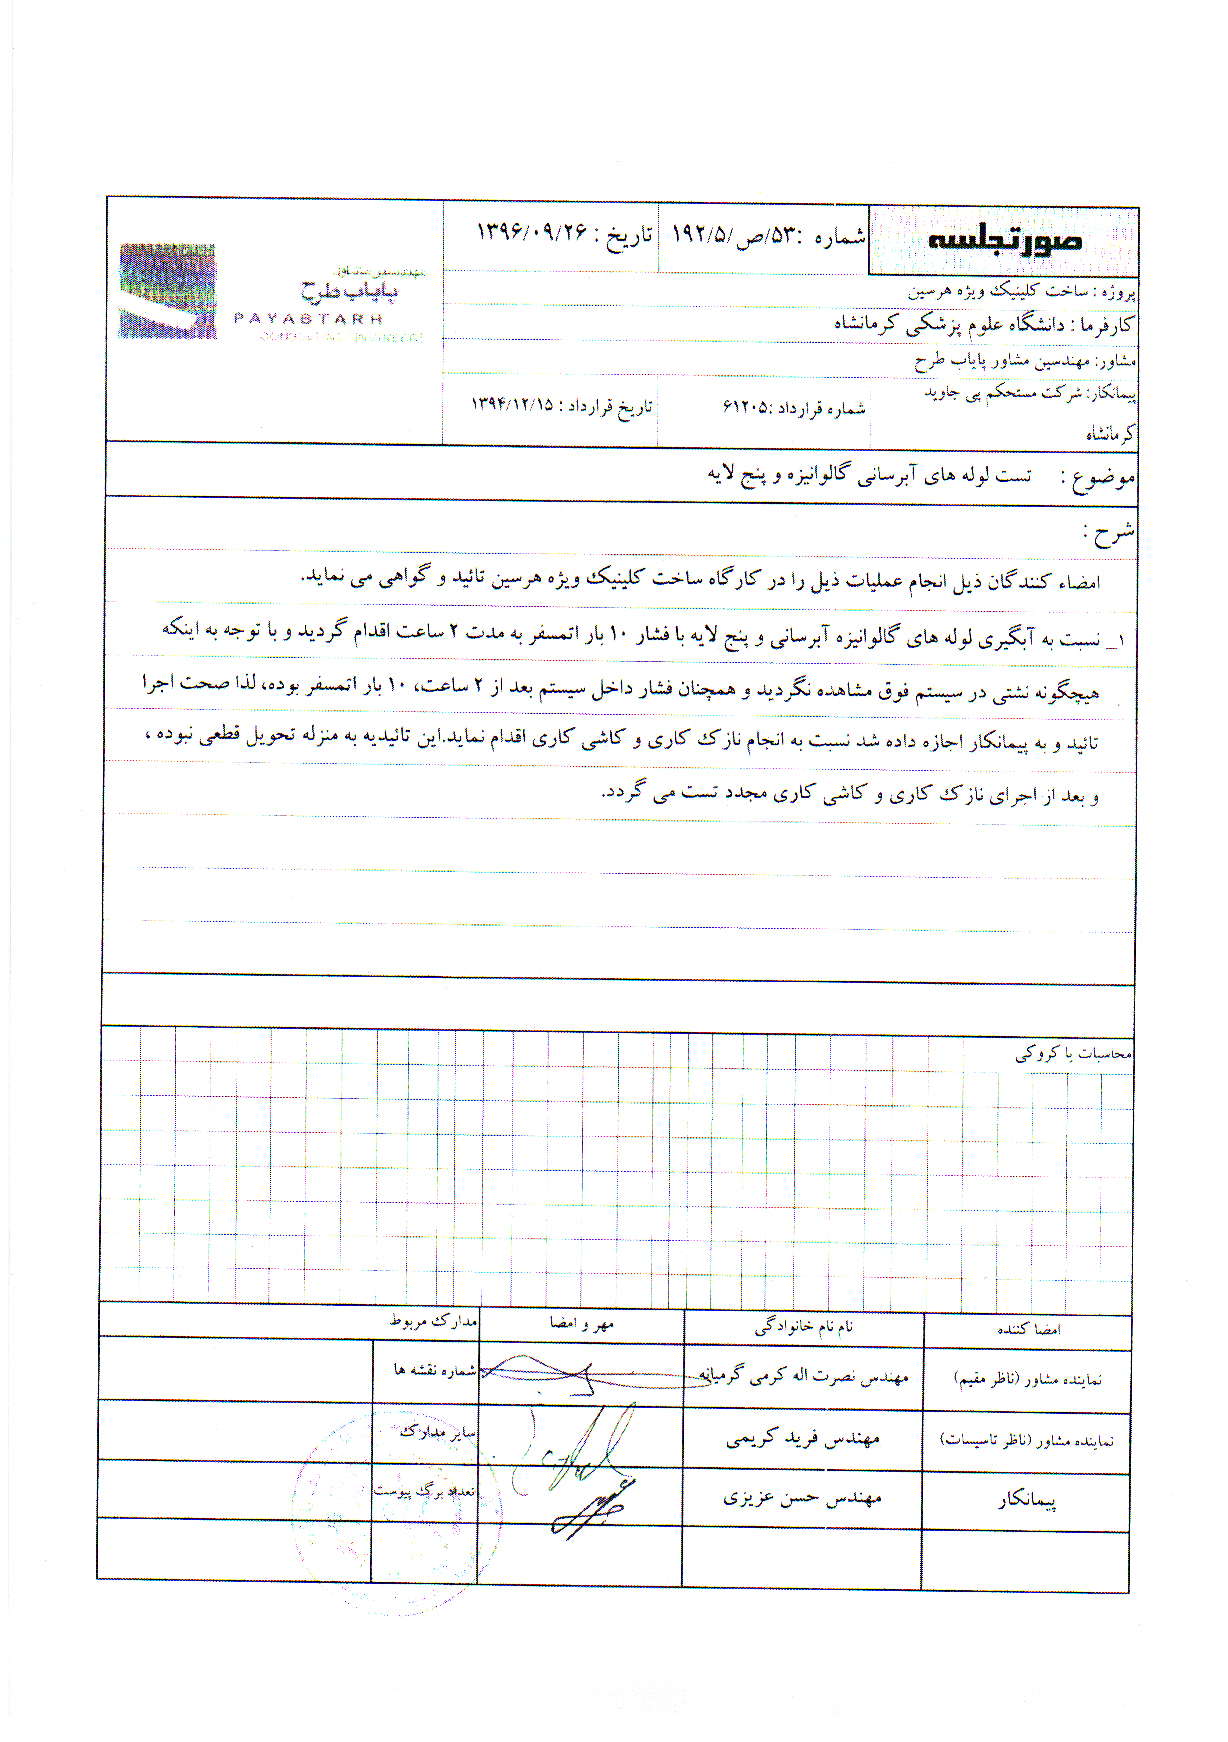 صورتجلسه
شماره :۵۳/ص/۱۹۲/۵
تاریخ : ۱۳۹۶/۰۹/۲۶
پایاب طرح
PAYABTARH
پروژه : ساخت کلینیک ویژه هرسین
کارفرما : دانشگاه علوم پزشکی کرمانشاه
مشاور: مهندسین مشاور پایاب طرح
پیمانکار: شرکت مستحکم پی جاوید
کرمانشاه
شماره قرارداد :۶۱۲۰۵
تاریخ قرارداد : ۱۳۹۴/۱۲/۱۵
موضوع : تست لوله های آبرسانی گالوانیزه و پنج لایه
شرح :
امضاء کنندگان ذیل انجام عملیات ذیل را در کارگاه ساخت کلینیک ویژه هرسین تائید و گواهی می نماید.
۱_ نسبت به آبگیری لوله های گالوانیزه آبرسانی و پنج لایه با فشار ۱۰ بار اتمسفر به مدت ۲ ساعت اقدام گردید و با توجه به اینکه
هیچگونه نشتی در سیستم فوق مشاهده نگردید و همچنان فشار داخل سیستم بعد از ۲ ساعت، ۱۰ بار اتمسفر بوده، لذا صحت اجرا
تائید و به پیمانکار اجازه داده شد نسبت به انجام نازک کاری و کاشی کاری اقدام نماید.این تائیدیه به منزله تحویل قطعی نبوده ،
و بعد از اجرای نازک کاری و کاشی کاری مجدد تست می گردد.
محاسبات یا کروکی
امضا کننده
نام نام خانوادگی
مهر و امضا
مدارک مربوط
نماینده مشاور (ناظر مقیم)
مهندس نصرت اله کرمی گرمیانه
شماره نقشه ها
نماینده مشاور (ناظر تاسیسات)
مهندس فرید کریمی
سایر مدارک
پیمانکار
مهندس حسن عزیزی
تعداد برگ پیوست